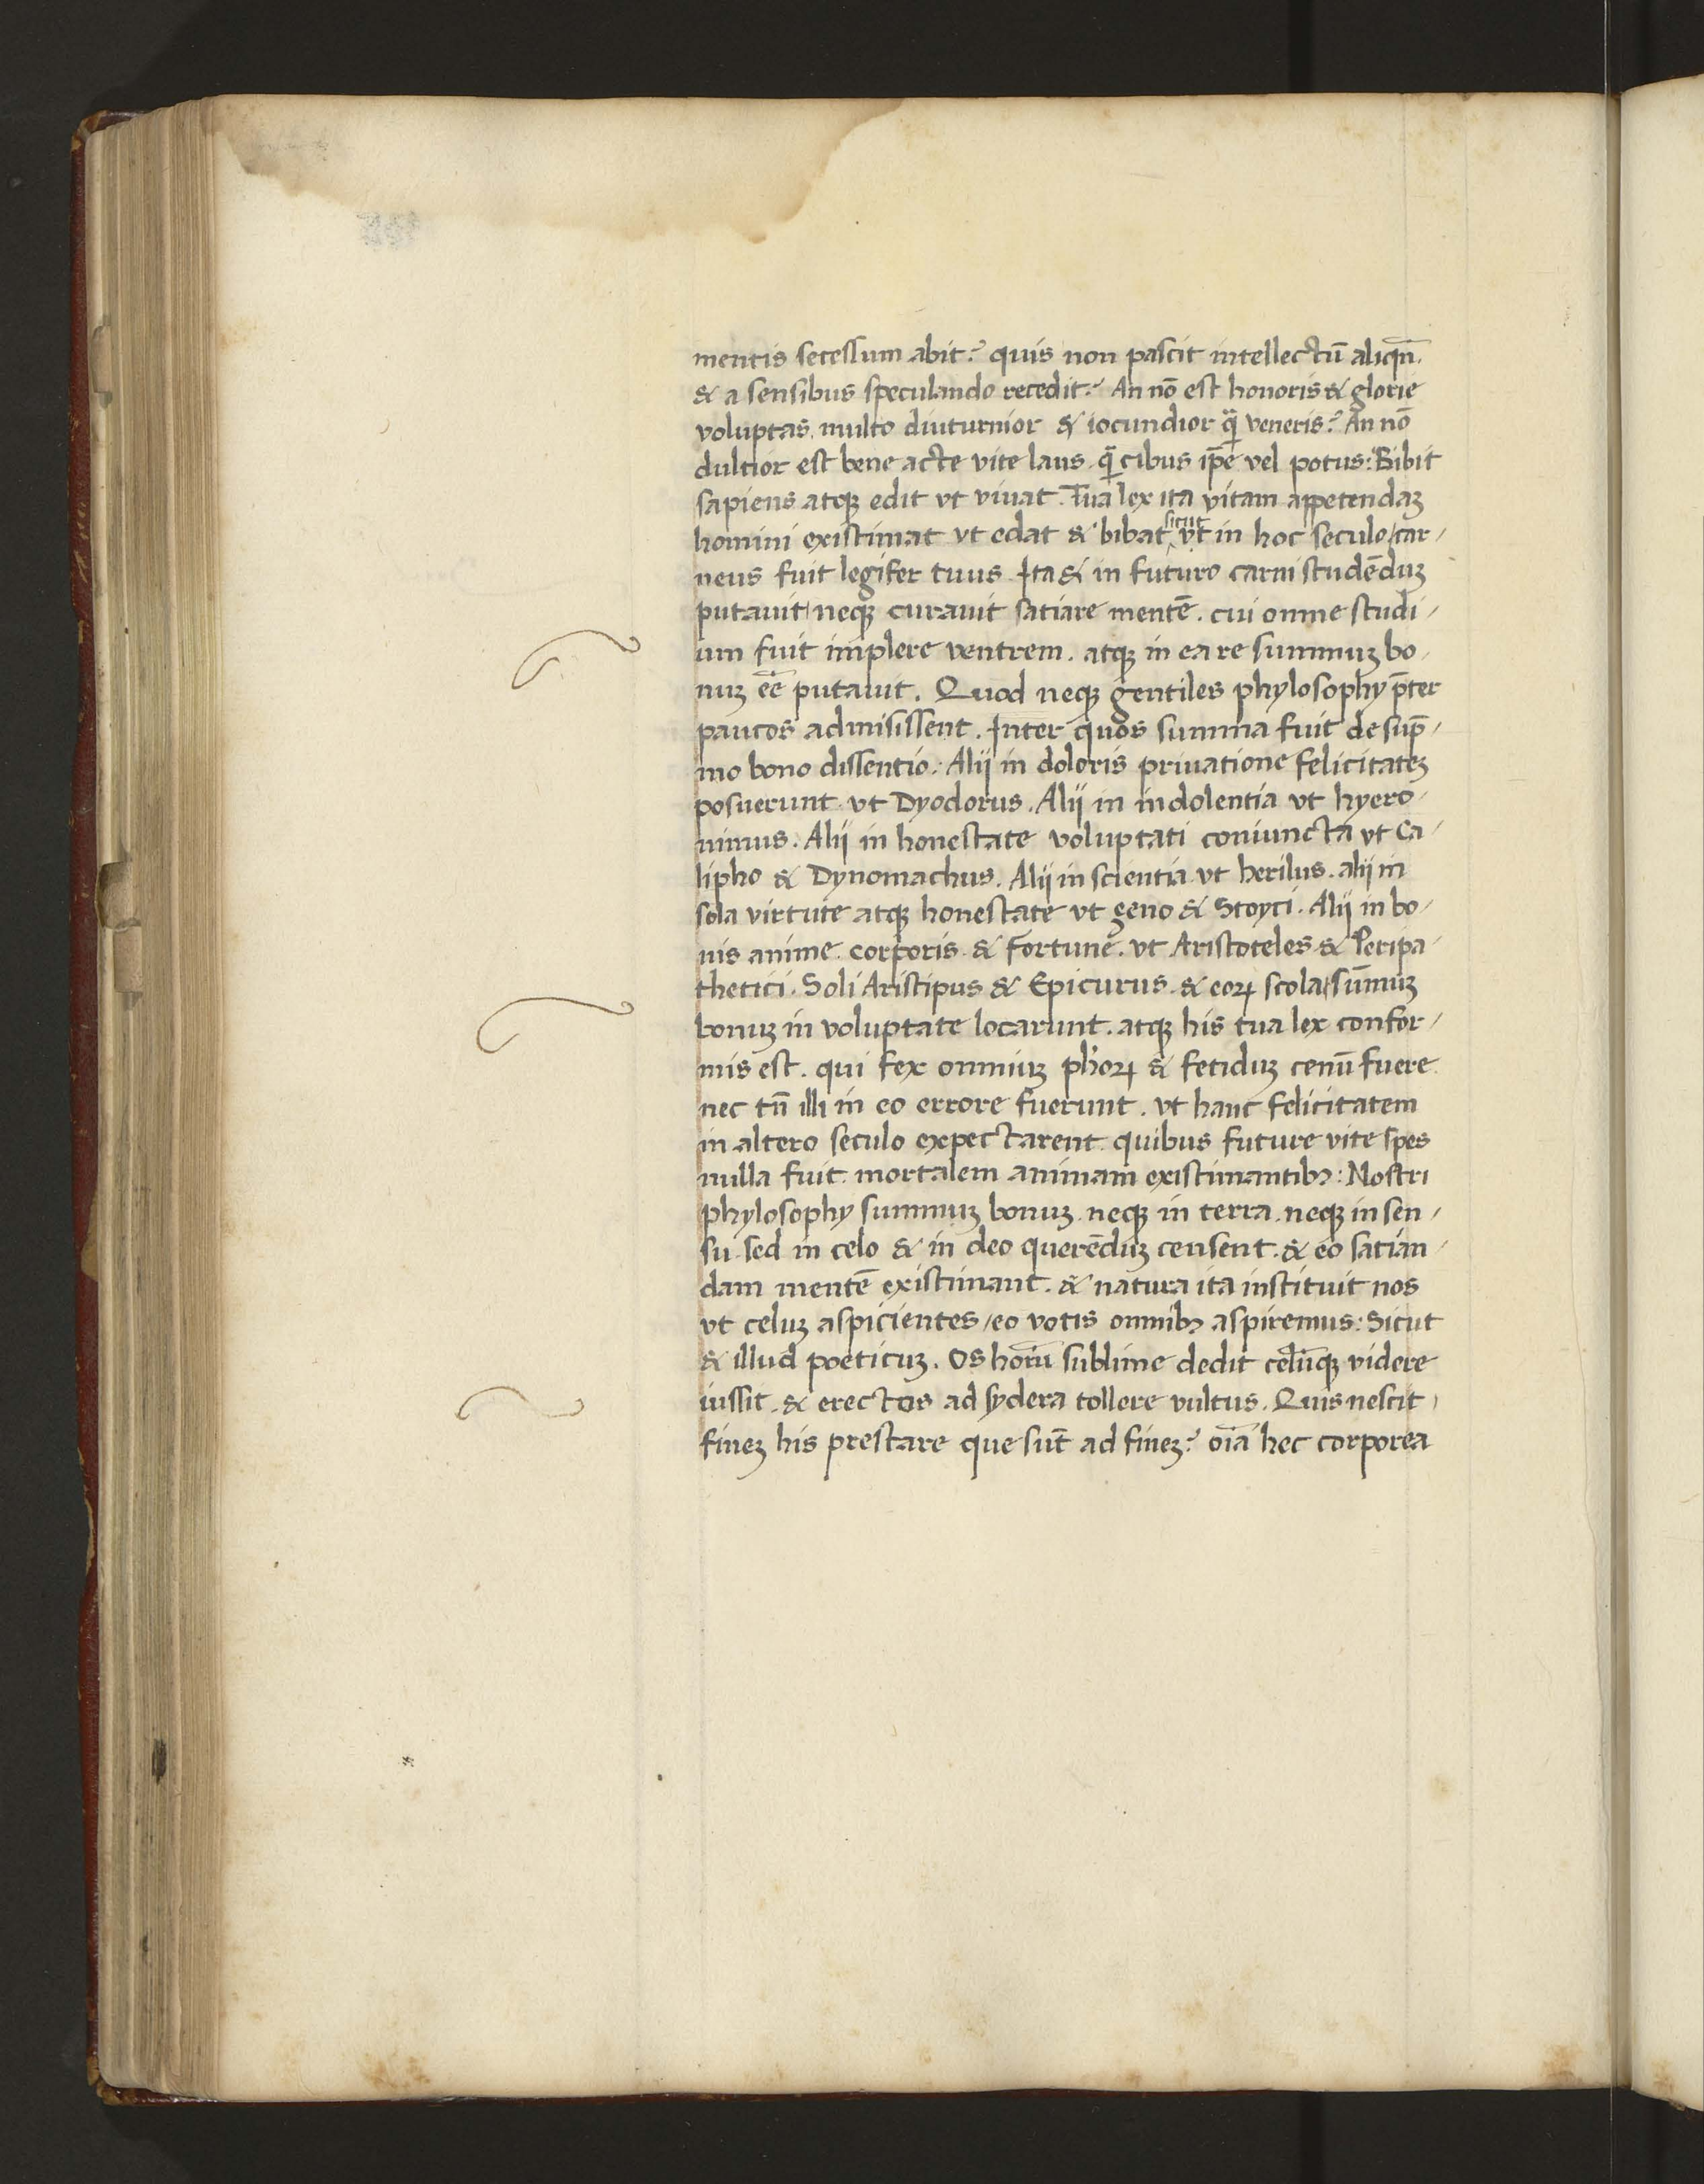 mentis secessum abit? quis non pascit intellectū aliqn̄
& a sensibus speculando recedit? An nō est honoris & glorie
voluptas. multo diuturnior & iocundior q̄ veneris? An nō
dultior est bene acte vite laus. q̄ cibus ip̄e vel potus: Bibit
sapiens atqꝫ edit vt viuat. Tua lex ita vitam appetendaꝫ
homini existimat vt edat & bibat sicut vt in hoc seculo/car-
neus fuit legifer tuus. Ita & in futuro carni studēduꝫ
putauit/neqꝫ curauit satiare mentē. cui omne studi-
um fuit implere ventrem. atqꝫ in ea re summuꝫ bo-
nuꝫ eē putauit. Quod neqꝫ gentiles phylosophy p̄ter
paucos admisissent. Inter quos summa fuit de sup̄-
mo bono dissentio. Alij in doloris priuatione felicitateꝫ
posuerunt. vt Dyodorus. Alij in indolentia vt hyero-
nimus. Alij in honestate voluptati coniuncta vt Ca-
lipho & Dynomachus. Alij in scientia vt herilus. alij in
sola virtute atqꝫ honestate vt geno & Stoyci. Alij in bo-
nis anime. corporis. & fortune. vt Aristoteles & Peripa-
thetici. Soli Aristipus & Epicurus. & eoꝝ scola/sum̄uꝫ
bonuꝫ in voluptate locarunt. atqꝫ his tua lex confor-
mis est. qui fex omniuꝫ ph'oꝝ & fetiduꝫ cenū fuere
nec tn̄ illi in eo errore fuerunt. vt hanc felicitatem
in altero seculo expectarent. quibus future vite spes
nulla fuit. mortalem animam existimantibꝫ: Nostri
phylosophy summuꝫ bonuꝫ. neqꝫ in terra. neqꝫ in sen-
su. sed in celo & in deo querēduꝫ censent. & eo satian-
dam mentē existimant. & natura ita instituit nos
vt celuꝫ aspicientes/eo votis omnibꝫ aspiremus: Sicut
& illud poeticuꝫ. Os hoīn̄ sublime dedit celūqꝫ videre
iussit. & erectos ad sydera tollere vultus. Quis nescit
fineꝫ his prestare que sūt ad fineꝫ? oīa hec corporea